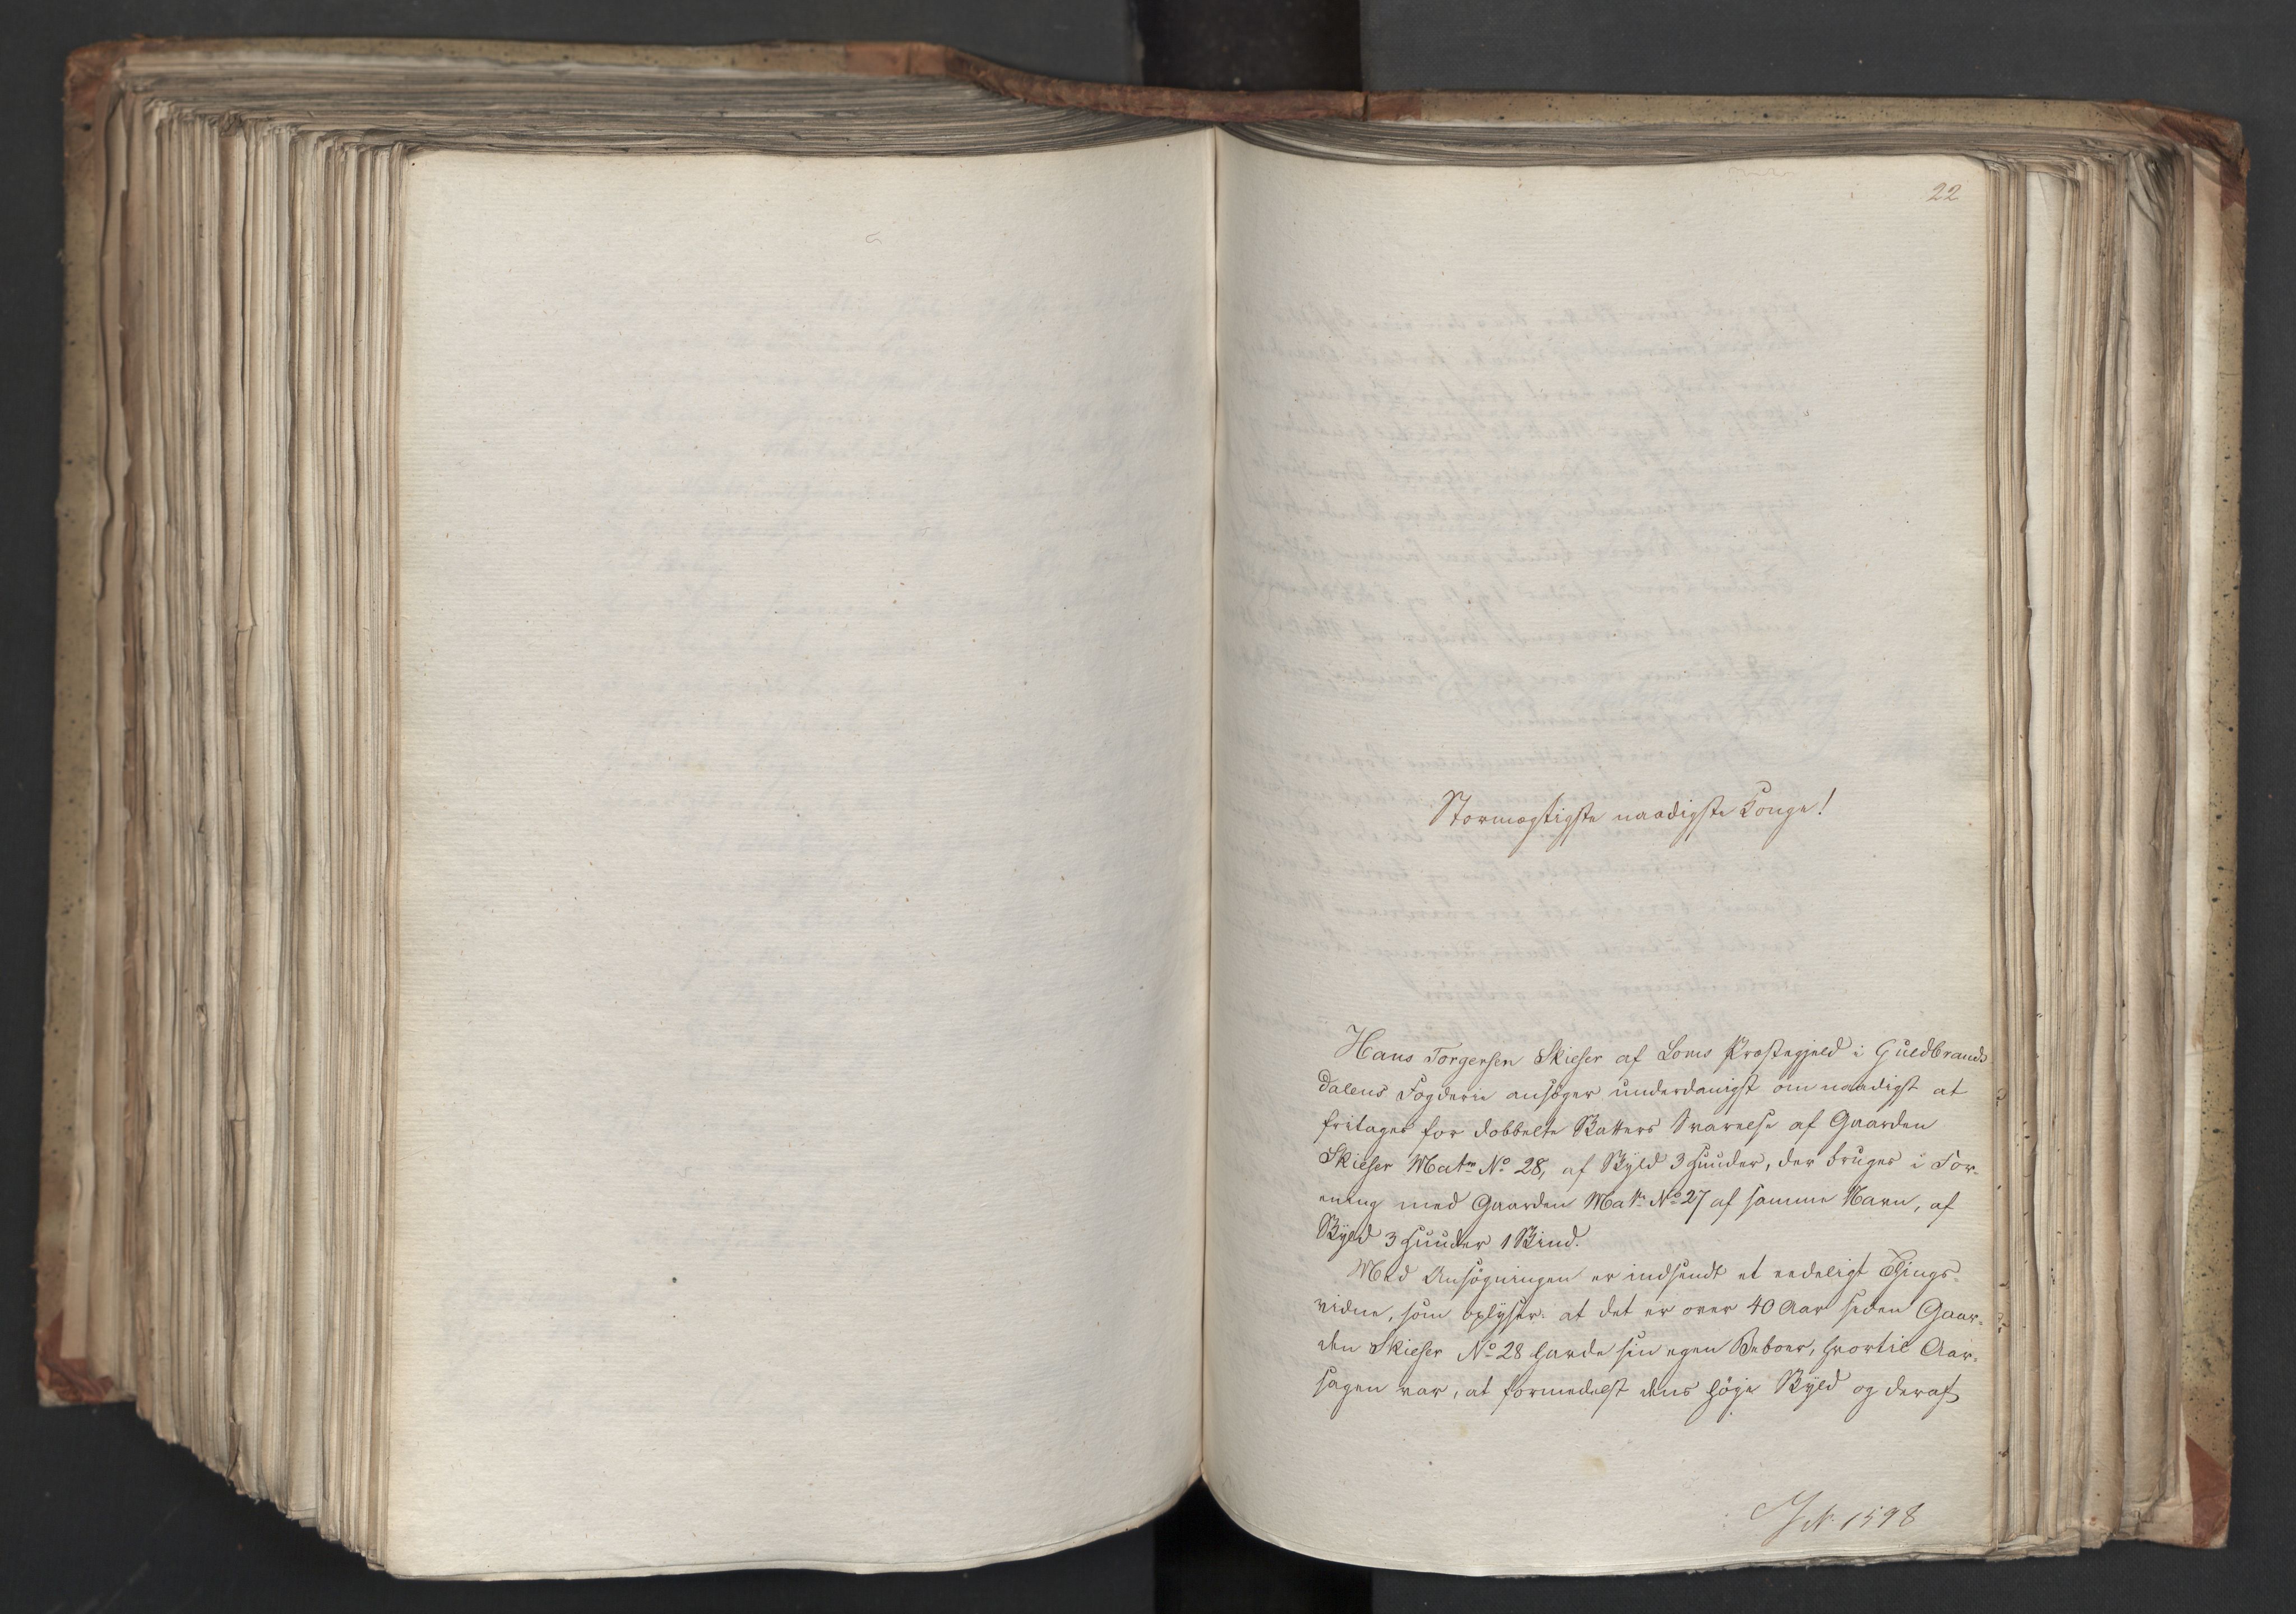 22
Stormægtigste naadigste Konge!
Hans Torgersen Skieser af Loms Præstegjeld i Guldbrands
dalens Fogderie ansøger underdanigst om naadigst at
fritages for dobbelte Skatters Svarelse af Gaarden
Skieser Matr No 28, af Skyld 3 Huuder, der bruges i For-
ening med Gaarden Matr No 27 af samme Navn, af
Skyld 3 Huuder 1 Skind.
Med Ansøgningen er indsendt et eedeligt Things-
vidne, som oplyser: at det er over 40 Aar siden Gaar-
den Skieser No 28 havde sin egen Beboer, hvortil Aar-
sagen var, at formedelst dens høje Skyld og deraf
N. 1598